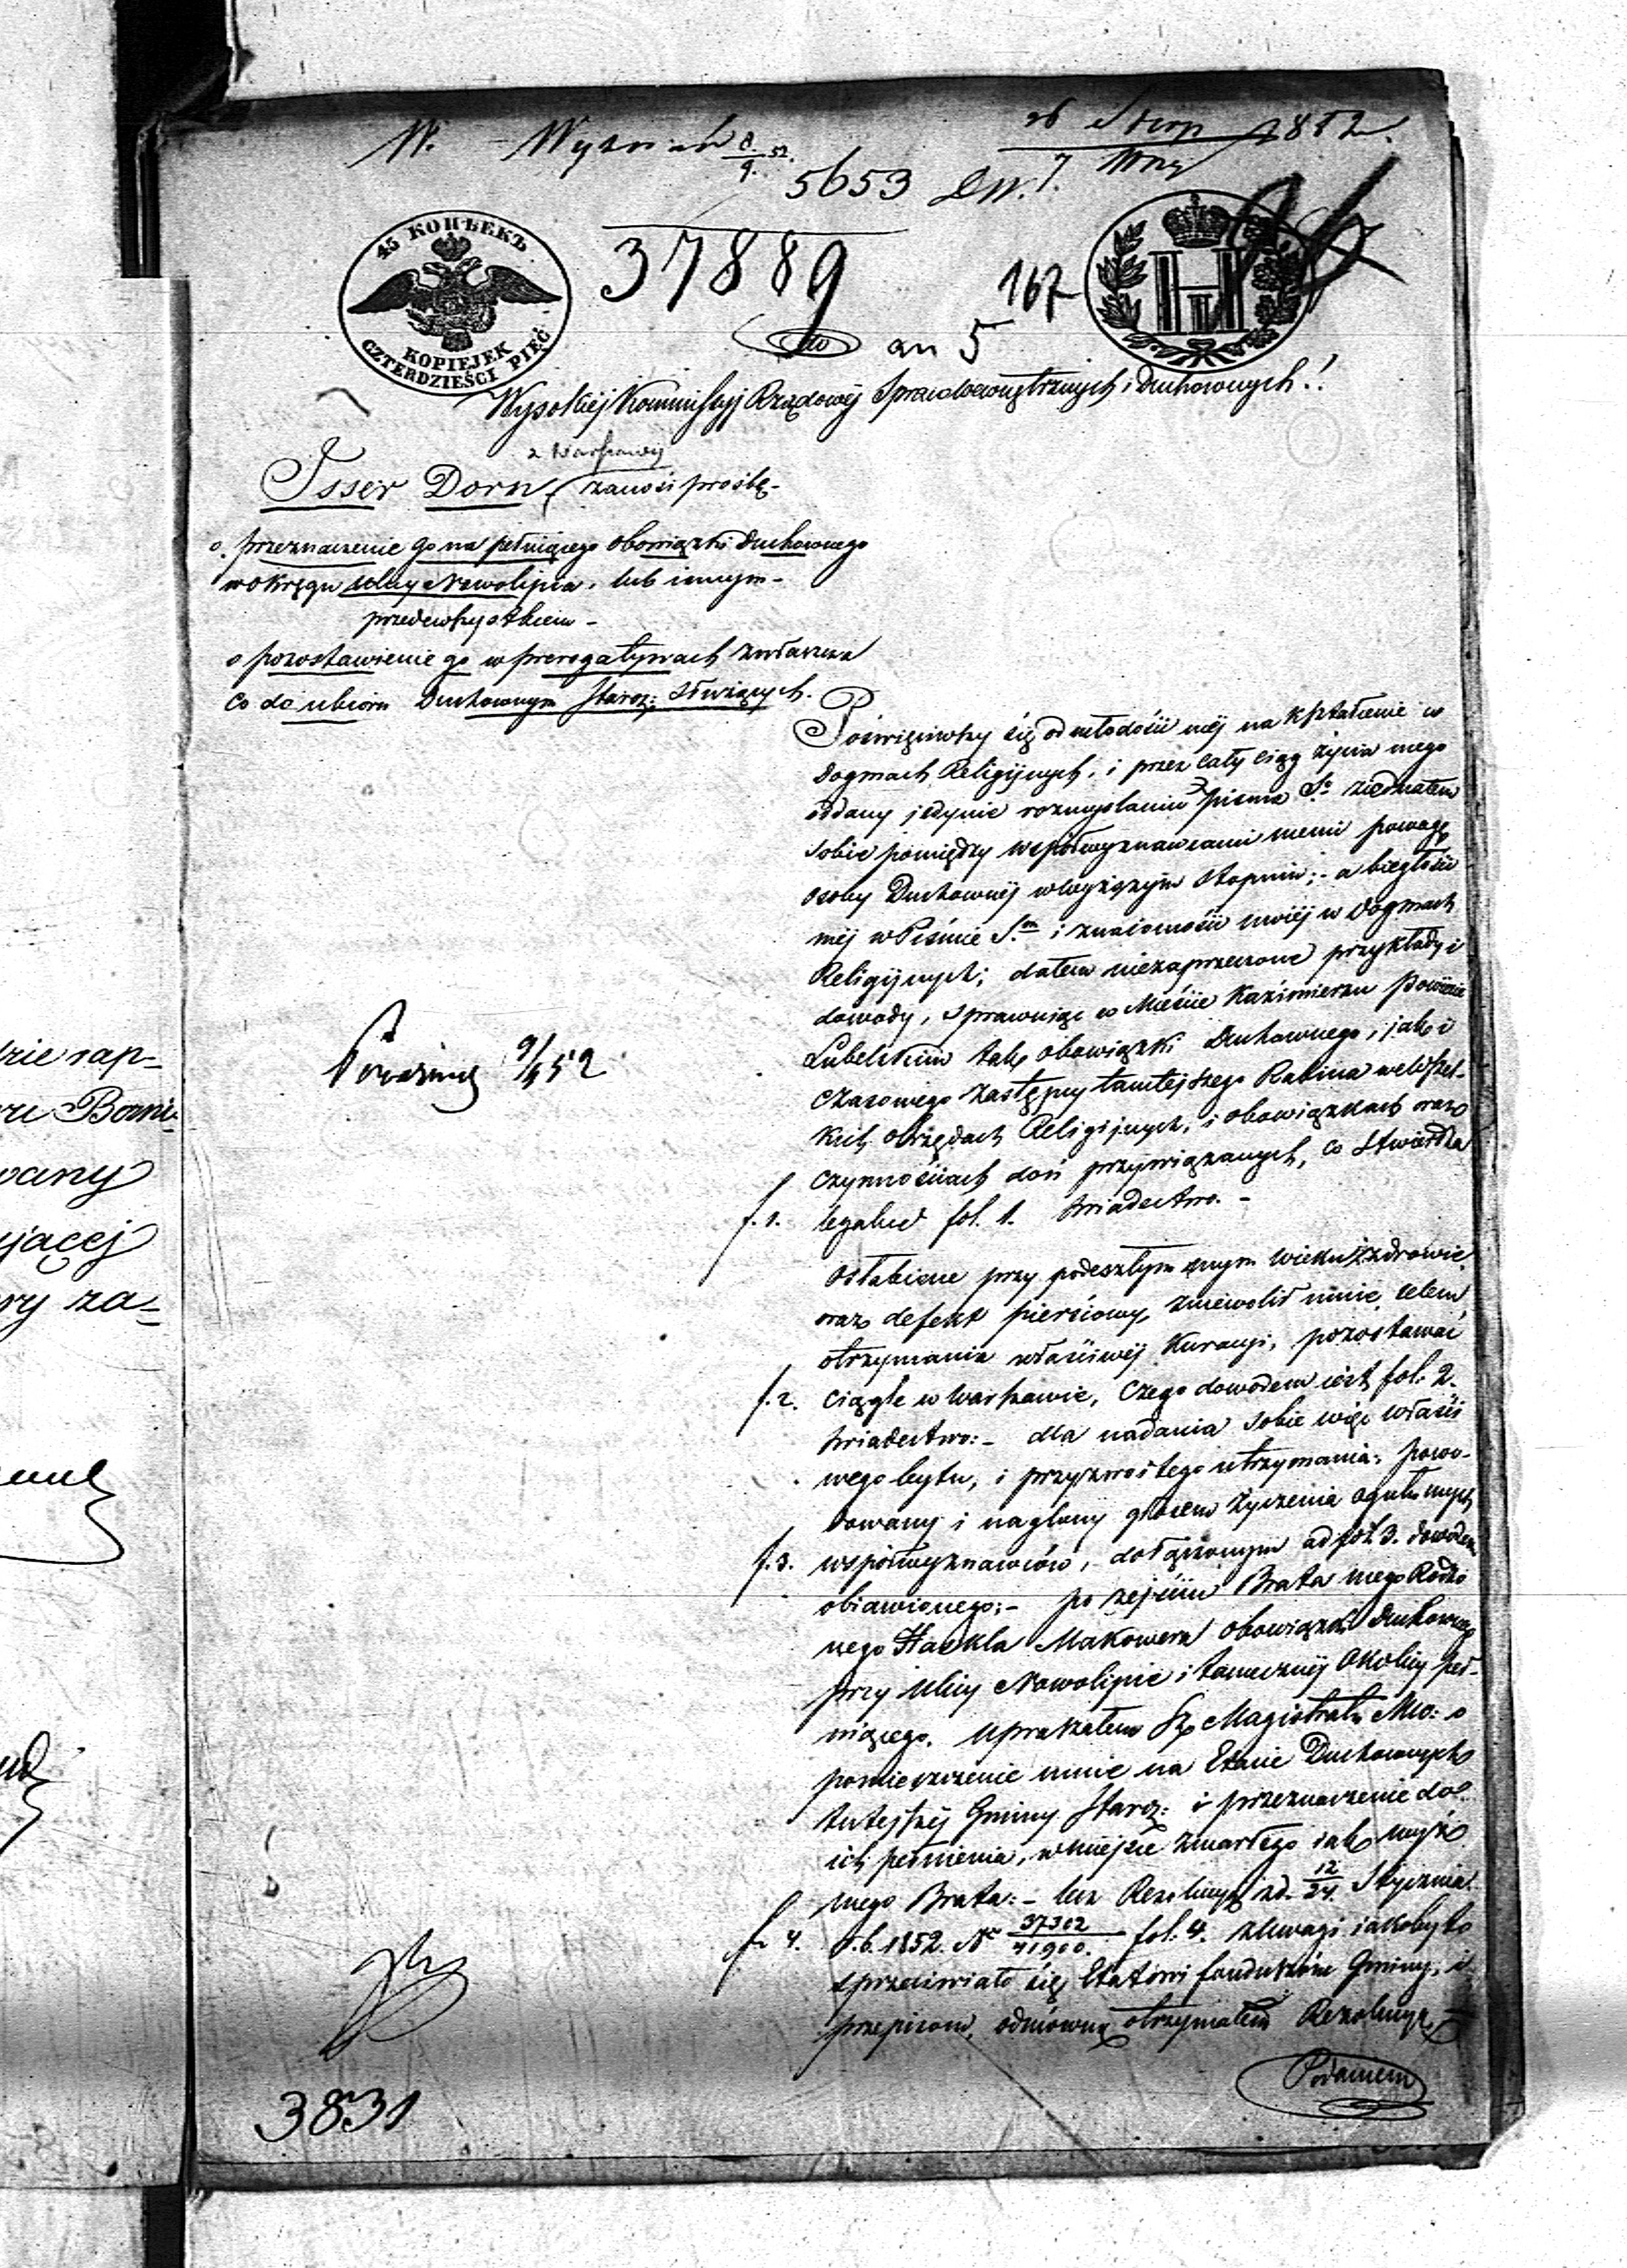 W. Wyznań 8/9 52.
26 Sierp 1852.
7. Wrz
5653 DW.
45 КОПѢЕКЪ
KOPIEJEK
CZTERDZIEŚCI PIĘĆ
37889
167
an 5
Wysokiej Kommissyi Rządowej Spraw Wewnętrznych i Duchownych!
z Warszawy
Isser Dorn, zanosi prośbę -
o przeznaczenie go na pełniącego obowiązki Duchownego
w okręgu Ulicy Nowolipia, lub innym -
przedewszystkiem -
o pozostawienie go w prerogatywach zwłaszcza
co do ubioru Duchownym Staroz: służących.
Poświęciwszy się od młodości mej na kształcenie w
Dogmach Religijnych, i przez cały ciąg życia mego
oddany jedynie rozmyślaniu Pisma Sgo ziednałem
sobie pomiędzy współwyznawcami memi powagę
osoby Duchownej w wyższym stopniu; - a biegłości
mej w Piśmie S. i znaiomości mojej w Dogmach
Religijnych; dałem niezaprzeczone przykłady i
dowody, sprawuiąc w Mieście Kazimierzu Powiecie
Lubelskim tak obowiązki Duchownego, jak i
czasowego zastępcy tamtejszego Rabina we wszel-
kich obrzędach Religijnych, i obowiązkach oraz
czynnościach doń przywiązanych, co stwierdza
f. 1. legalne fol. 1. świadectwo. -
Osłabione przy podeszłym mym wieku zdrowie
oraz defekt piersiowy, zniewolił mnie celem
otrzymania właściwej Kuracyi, pozostawać
f. 2. ciągle w Warszawie, czego dowodem iest fol: 2.
świadectwo: - dla nadania sobie więc właści
wego bytu, i przyzwoitego utrzymania, powo-
dowany i naglony głosem życzenia ogółu mych
f. 3. współwyznawców, - dołączonym ad fol: 3. dowodem
obiawionego; - po zejściu Brata mego Rodzo
nego Haskla Makowera obowiązki Duchownego
przy Ulicy Nowolipie i tamecznej Okolicy peł-
niącego. Upraszałem Magistratu Mta: o
pomieszczenie mnie na Etacie Duchownych
tutejszej Gminy Staroz: i przeznaczenie do
ich pełnienia, w miejsce zmarłego iak wyżej
mego Brata: - lecz Rezolucyą z d. 12/24 Stycznia
f. 4. r. b. 1852. Nr 37302/41900. fol: 4. z uwagi iakoby to
sprzeciwiało się Etatowi funduszów Gminy, i
przepisom, odmówną otrzymałem Rezolucyę. -
Podaniem
Poważny 9/9 52
3831